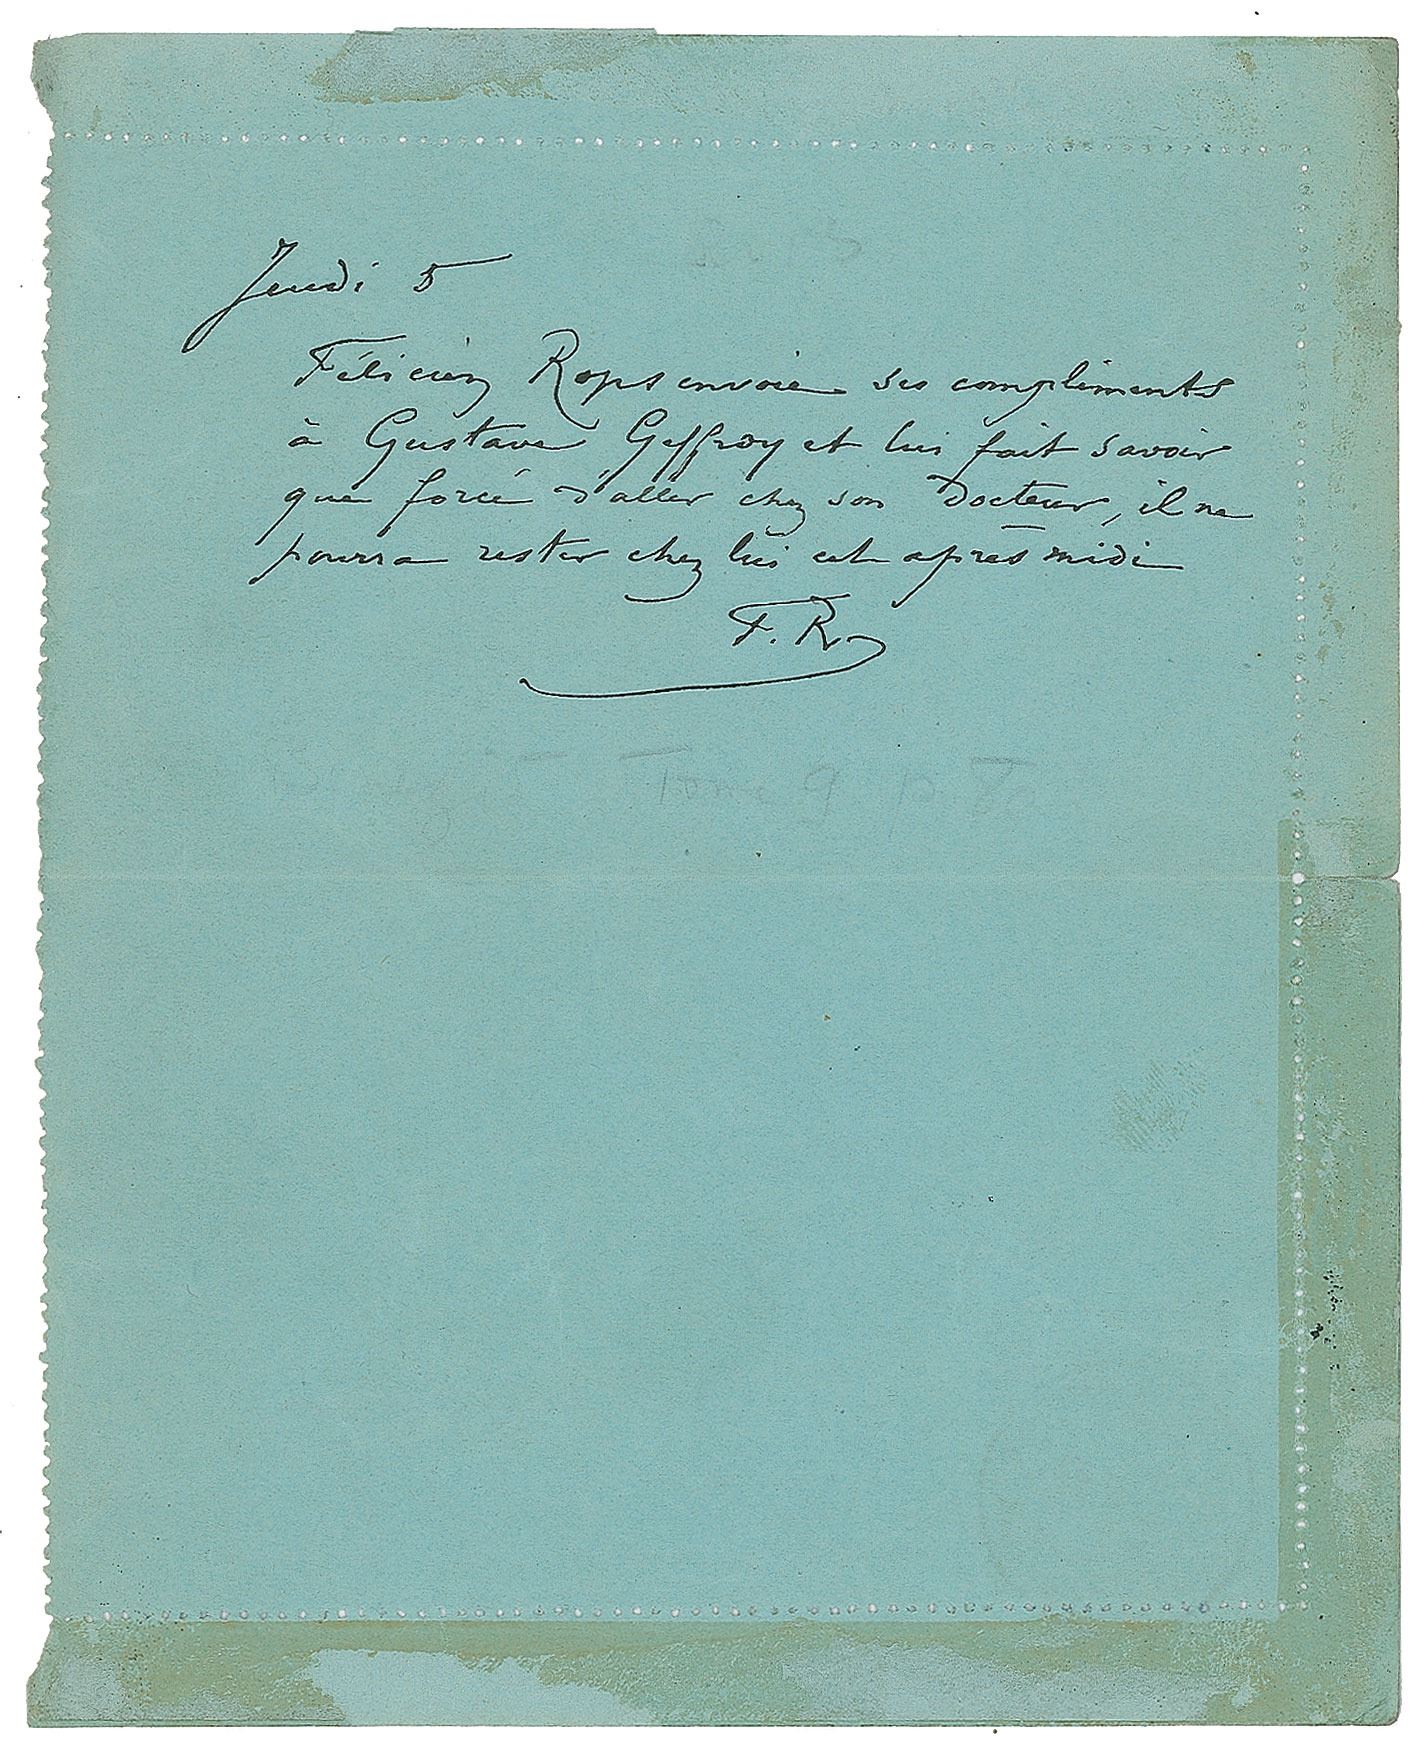 Jeudi 5
Félicien Rops envoie ses compliments
à Gustave Geffroy et lui fait savoir
que forcé d'aller chez son Docteur, il ne
pourra rester chez lui cet après midi
F. R
Tome 9 p.